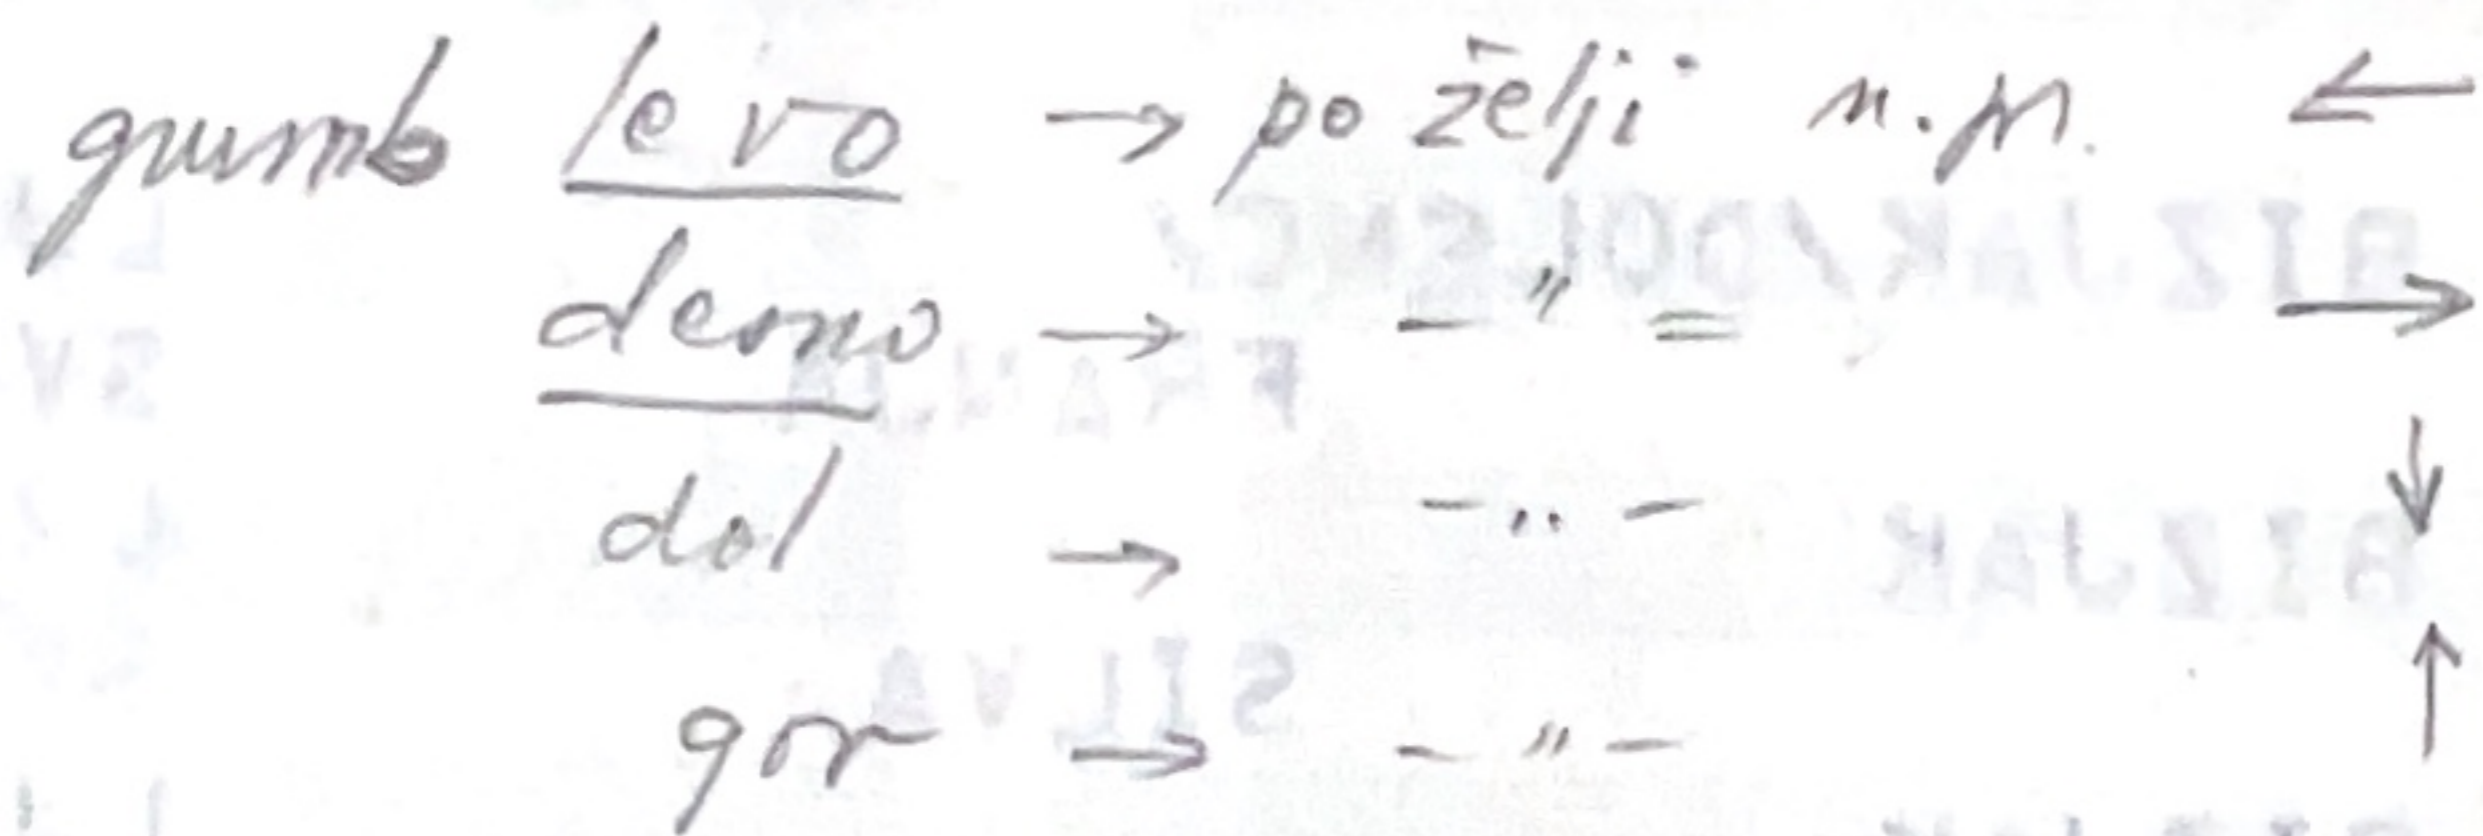 gumb levo → po želji n.pr. ←
desno → -"= →
dol → -"- ↓
gor → -"- ↑